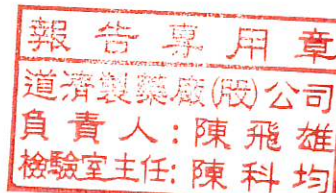 報告專用章
道濟製藥廠(股)公司
負責人:陳飛雄
檢驗室主任:陳科均